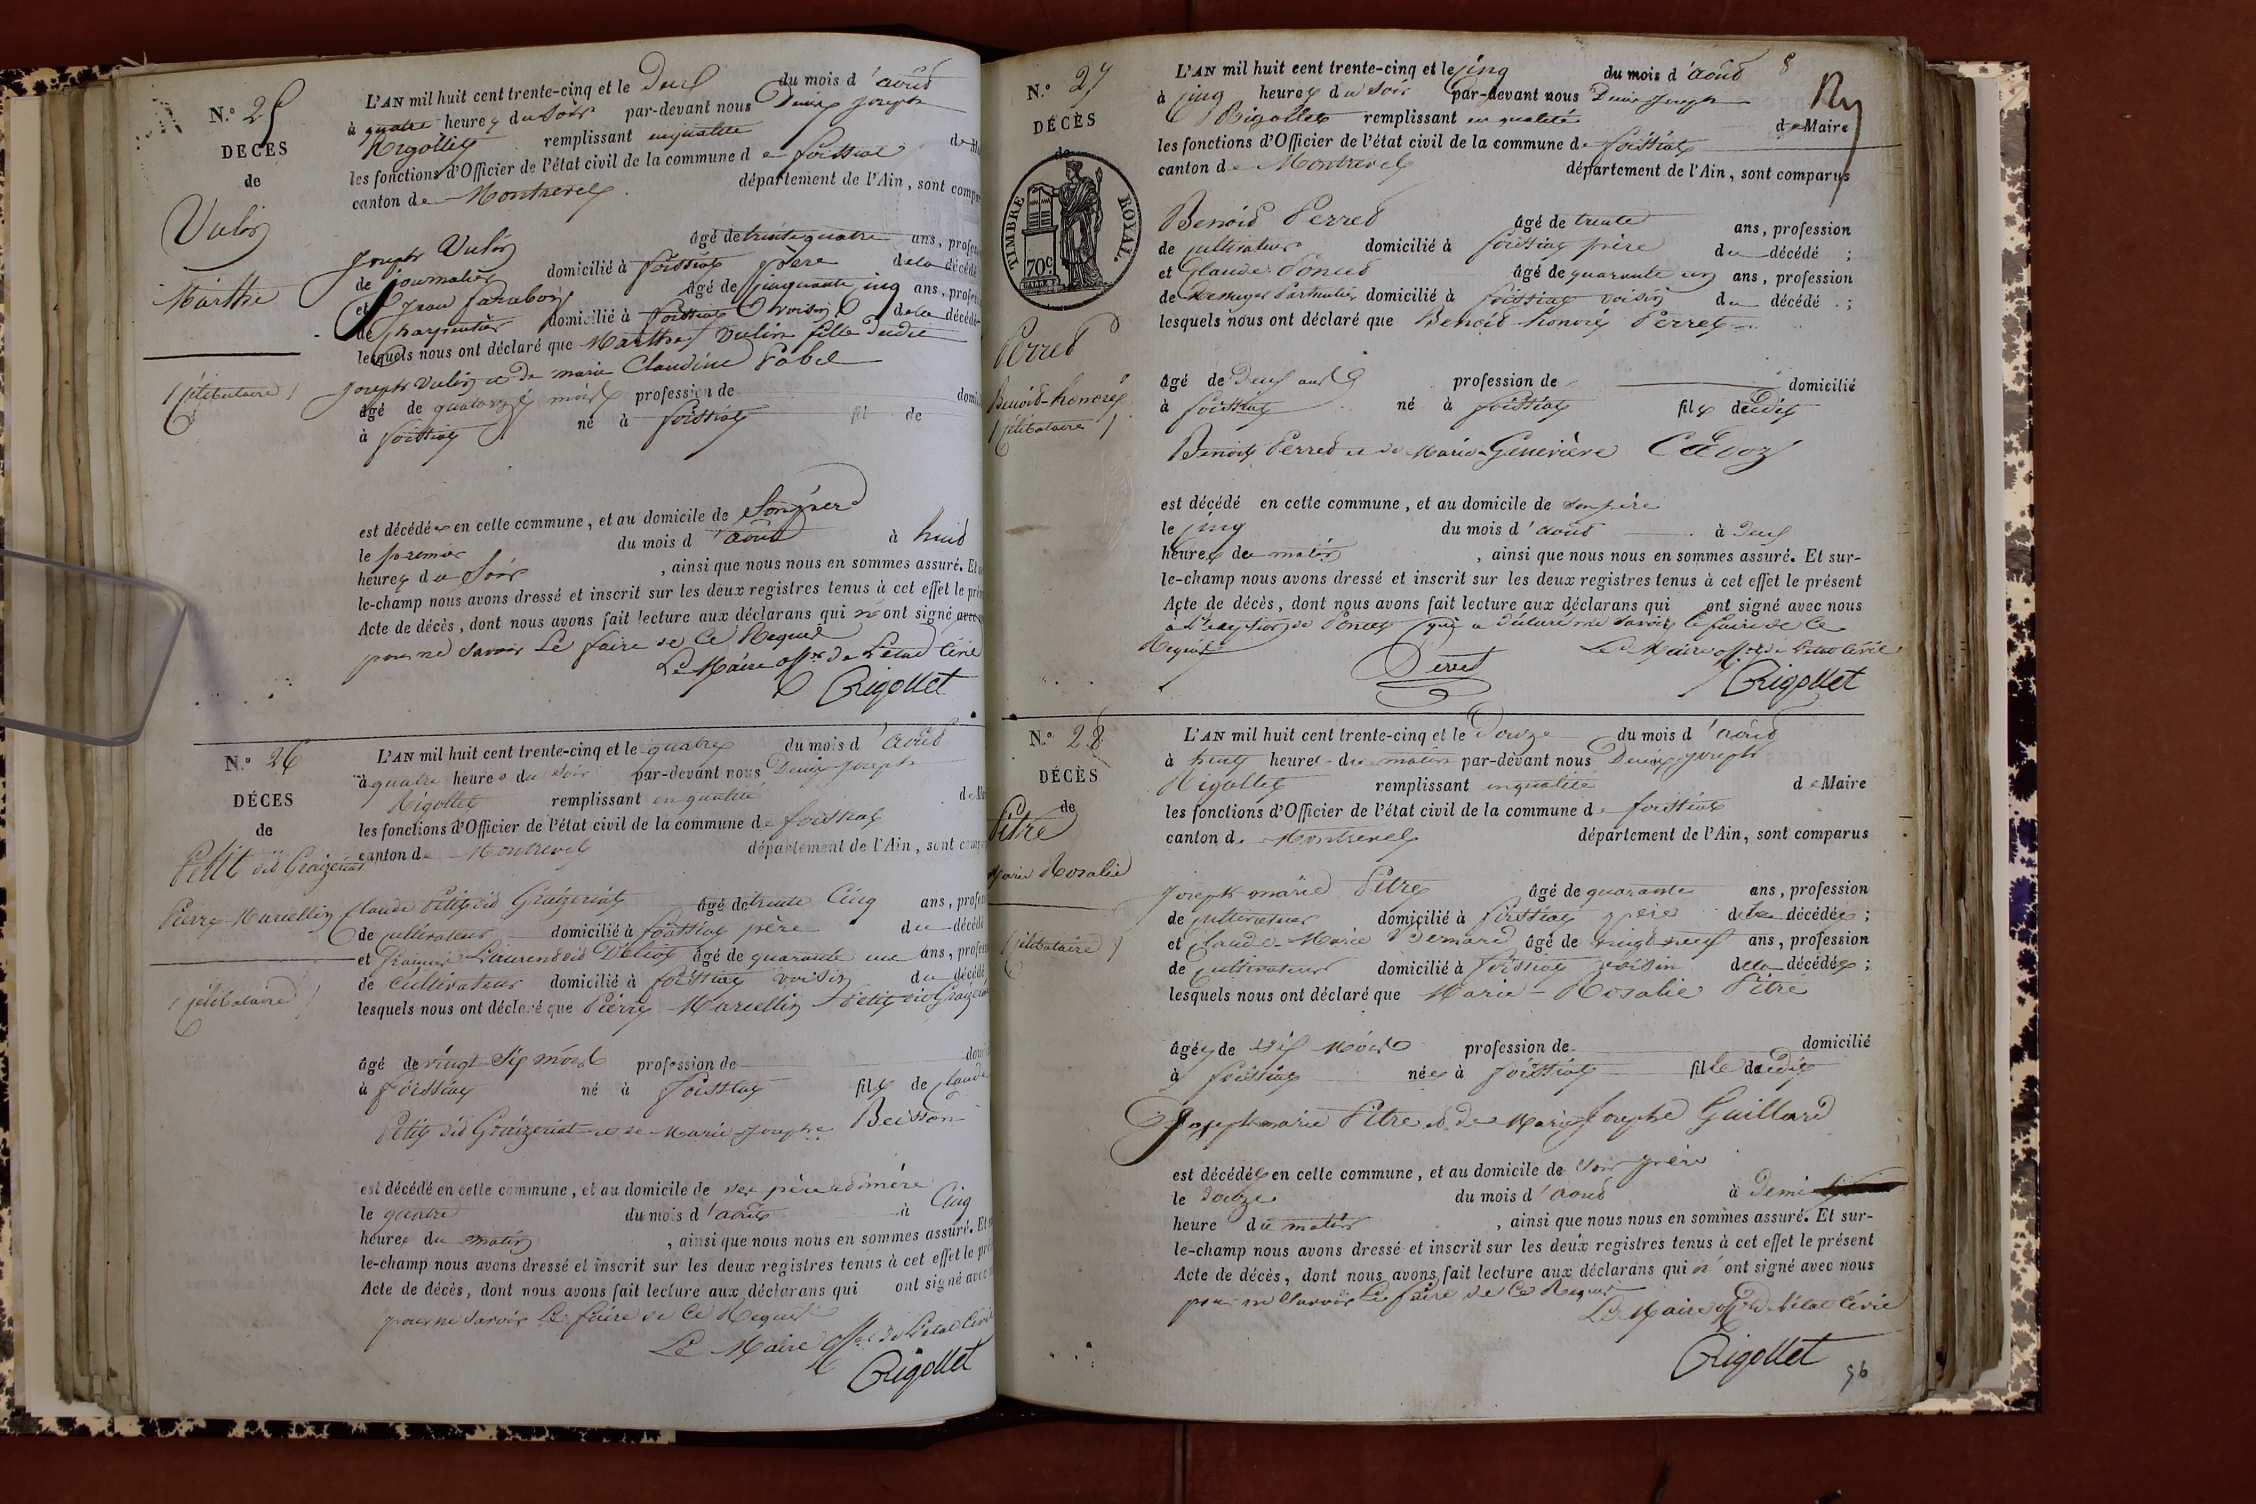 N.° 25
DECÈS
de
Vulin
Marthe
(Célibataire)
L'AN mil huit cent trente-cinq et le Deux du mois d'août
à quatre heures du Soir par-devant nous Denix Joseph
Rigollet remplissant en qualité de
les fonctions d'Officier de l'état civil de la commune de foissiat
canton de Montrevel département de l'Ain, sont
Joseph Vulin âgé de trente quatre ans,
de journalier domicilié à foissiat père de la décédé
et Jean âgé de Cinquante cinq ans,
de Charpentier domicilié à foissiat voisin de la décédé
lesquels nous ont déclaré que Marthe Vulin fille dudit
Joseph Vulin et de marie Claudine Pobel
âgé de quatorze mois profession de
à foissiat né à foissiat fil de
est décédée en cette commune, et au domicile de Son père
le premier du mois d'août à huit
heures du Soir, ainsi que nous nous en sommes assuré. Et
le-champ nous avons dressé et inscrit sur les deux registres tenus à cet effet le
Acte de décès, dont nous avons fait lecture aux déclarans qui n'ont signé
pour ne Savoir Le faire de Ce Requis
Le Maire offer de L'état Civil
Rigollet
N.° 26
DÉCES
de
Petit dit Graizeriat
Pierre Marcellin
(Célibataire)
L'AN mil huit cent trente-cinq et le quatre du mois d'août
à quatre heures du Soir par-devant nous Denix Joseph
Rigollet remplissant en qualité de
les fonctions d'Officier de l'état civil de la commune de foissiat
canton de Montrevel département de l'Ain, sont
Claude Petit dit Graizeriat âgé de trente Cinq ans,
de cultivateur domicilié à foissiat père du décédé
et Laurent dit âgé de quarante un ans,
de Cultivateur domicilié à foissiat voisin du décédé
lesquels nous ont déclaré que Pierre Marcellin Petit dit
âgé de vingt Six mois profession de
à foissiat né à foissiat fils de Claude
Petit dit Graizeriat et de Marie Josephe Beisson
est décédé en cette commune, et au domicile de Ses père et mère
le quatre du mois d'août à Cinq
heures du matin, ainsi que nous nous en sommes assuré. Et
le-champ nous avons dressé et inscrit sur les deux registres tenus à cet effet le
Acte de décès, dont nous avons fait lecture aux déclarans qui ont signé avec
pour ne Savoir Le faire de Ce Requis
Le Maire offer de L'état Civil
Rigollet
8
N.° 27
DÉCÈS
de
TIMBRE ROYAL.
70c
Perret
Benoit-honoré
(Célibataire)
L'AN mil huit cent trente-cinq et le Cinq du mois d'août
à Cinq heures du Soir par-devant nous Denix Joseph
Rigollet remplissant en qualité de Maire
les fonctions d'Officier de l'état civil de la commune de foissiat
canton de Montrevel département de l'Ain, sont comparus
Benoit Perret âgé de trente ans, profession
de cultivateur domicilié à foissiat père du décédé;
et Claude Poncet âgé de quarante cinq ans, profession
de Messager Particulier domicilié à foissiat voisin du décédé;
lesquels nous ont déclaré que Benoit honoré Perret
âgé de Deux ans profession de domicilié
à foissiat né à foissiat fils dudit
Benoit Perret et de Marie-Genevière Cadoz
est décédé en cette commune, et au domicile de Son père
le Cinq du mois d'août à Deux
heures du matin, ainsi que nous nous en sommes assuré. Et sur-
le-champ nous avons dressé et inscrit sur les deux registres tenus à cet effet le présent
Acte de décès, dont nous avons fait lecture aux déclarans qui ont signé avec nous
à L'exception de Poncet qui a déclaré ne Savoir Le faire de Ce
Requis
Perret
Le Maire offer de L'état Civil
Rigollet
N.° 28
DÉCÈS
de
Pitre
Marie Rosalie
(Célibataire)
L'AN mil huit cent trente-cinq et le Douze du mois d'août
à huit heures du matin par-devant nous Denix Joseph
Rigollet remplissant en qualité de Maire
les fonctions d'Officier de l'état civil de la commune de foissiat
canton de Montrevel département de l'Ain, sont comparus
Joseph marie Pitre âgé de quarante ans, profession
de cultivateur domicilié à foissiat père de la décédée;
et Claude-Marie Bernard âgé de vingt neuf ans, profession
de Cultivateur domicilié à foissiat voisin de la décédée;
lesquels nous ont déclaré que Marie-Rosalie Pitre
âgée de Six Mois profession de domicilié
à foissiat née à foissiat fille dudit
Joseph marie Pitre et de Marie Josephe Guillard
est décédée en cette commune, et au domicile de Son père
le Douze du mois d'août à Demi
heure du matin, ainsi que nous nous en sommes assuré. Et sur-
le-champ nous avons dressé et inscrit sur les deux registres tenus à cet effet le présent
Acte de décès, dont nous avons fait lecture aux déclarans qui n'ont signé avec nous
pour ne Savoir Le faire de Ce Requis
Le Maire offer de L'état Civil
Rigollet
96